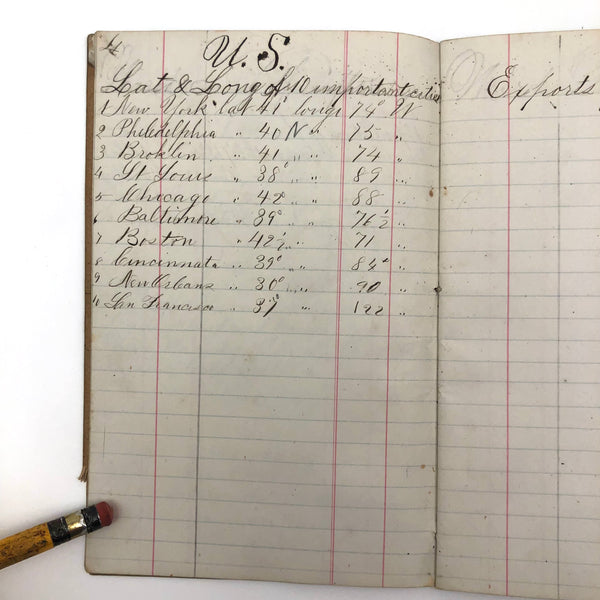 4
U. S.
Lat & Long of 10 important cities
1 New York lat 41° longi 74° W
2 Philedelphia " 40 N " 75 "
3 Broklin " 41 " " 74 "
4 St Louis " 38° " " 89 "
5 Chicago " 42 " " 88 "
6 Baltimore " 39° " " 76 1/2 "
7 Boston " 42 1/2 " " 71 "
8 Cincinnata " 39° " " 84° "
9 New Orleans " 30° " " 90 "
10 San Francisco " 37° " 122 "
Exports